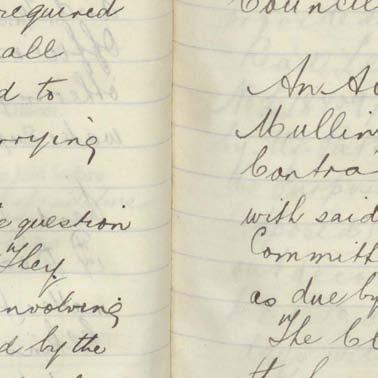 required
all
d to
rrying
e question
They
involving
d by the
Council
An Ac
Mullin
Contra
with said
Committ
as due by
The Cl